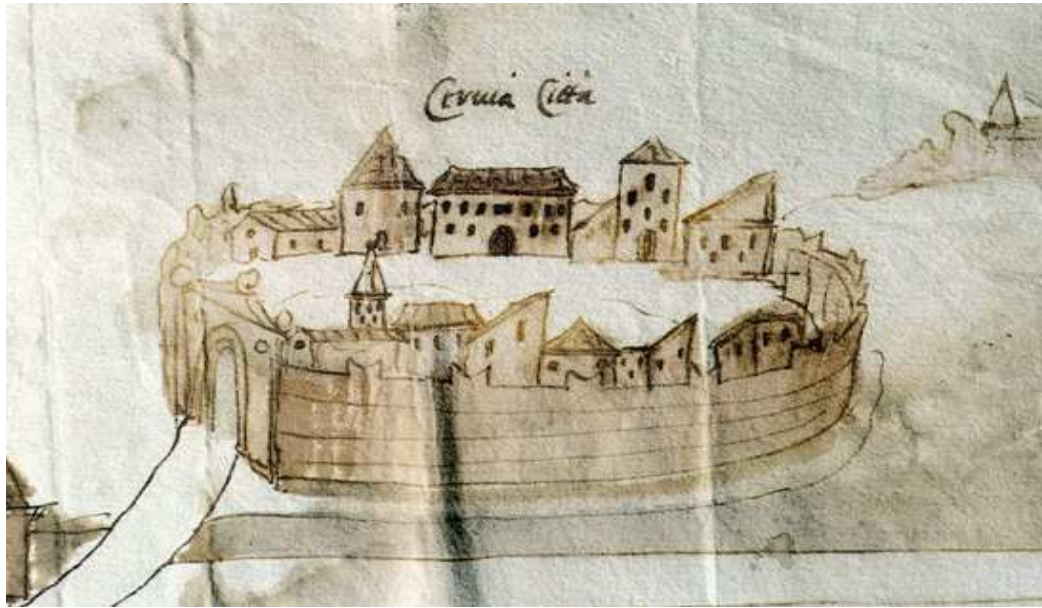 Cervia Città